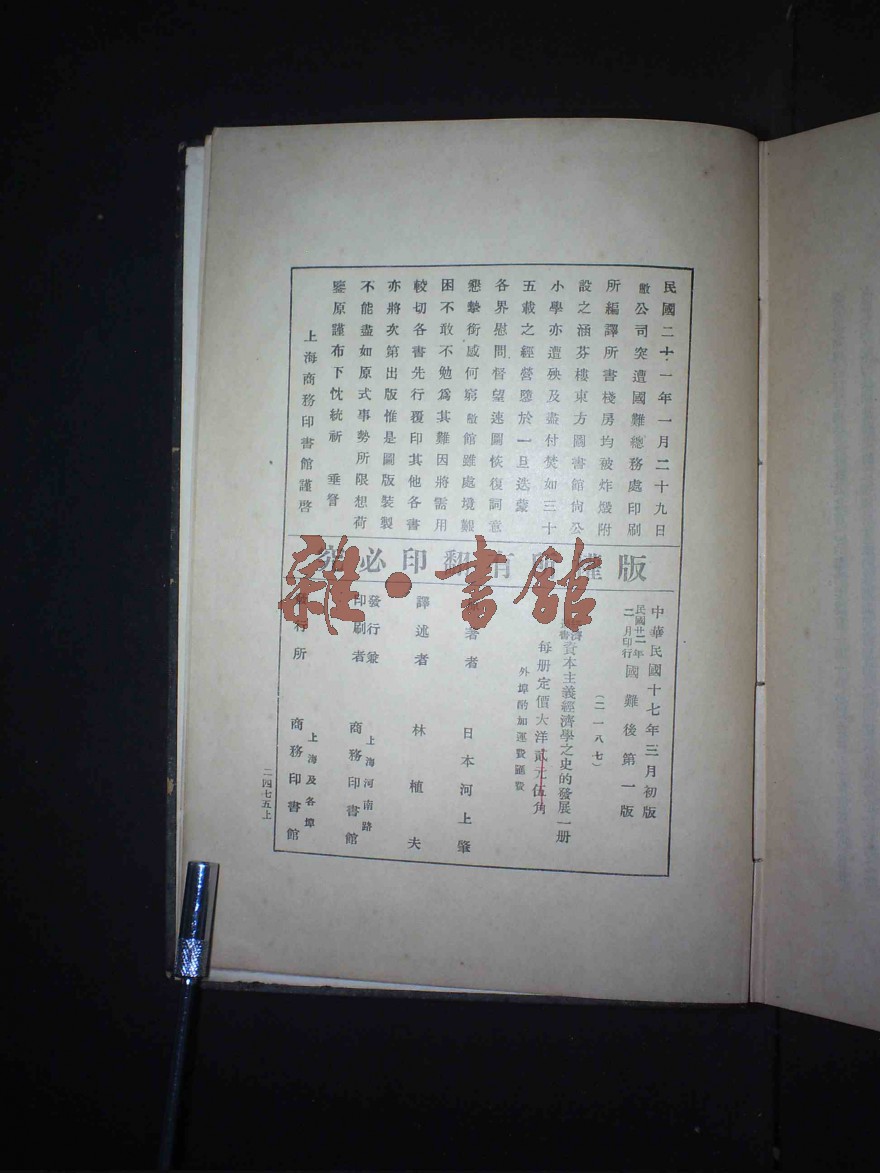 民國二十一年一月二十九日
敝公司突遭國難總務處印刷
所編譯所書棧房均被炸燬附
設之涵芬樓東方圖書館尙公
小學亦遭殃及盡付焚如三十
五載之經營隳於一旦迭蒙
各界慰問督望速圖恢復詞意
懇摯銜感何窮敝館雖處境艱
困不敢不勉爲其難因將需用
較切各書先行覆印其他各書
亦將次第出版惟是圖版裝製
不能盡如原式事勢所限想荷
鑒原謹布下忱統祈 垂詧
上海商務印書館謹啓
版權所有翻印必究
雜·書館
中華民國十七年三月初版
民國廿二年二月印行 國難後第一版
(二一八七)
資本主義經濟學之史的發展一册
每册定價大洋貳元伍角
外埠酌加運費匯費
著者 日本河上肇
譯述者 林植夫
發行兼印刷者 上海河南路 商務印書館
發行所 上海及各埠 商務印書館
二四七五上